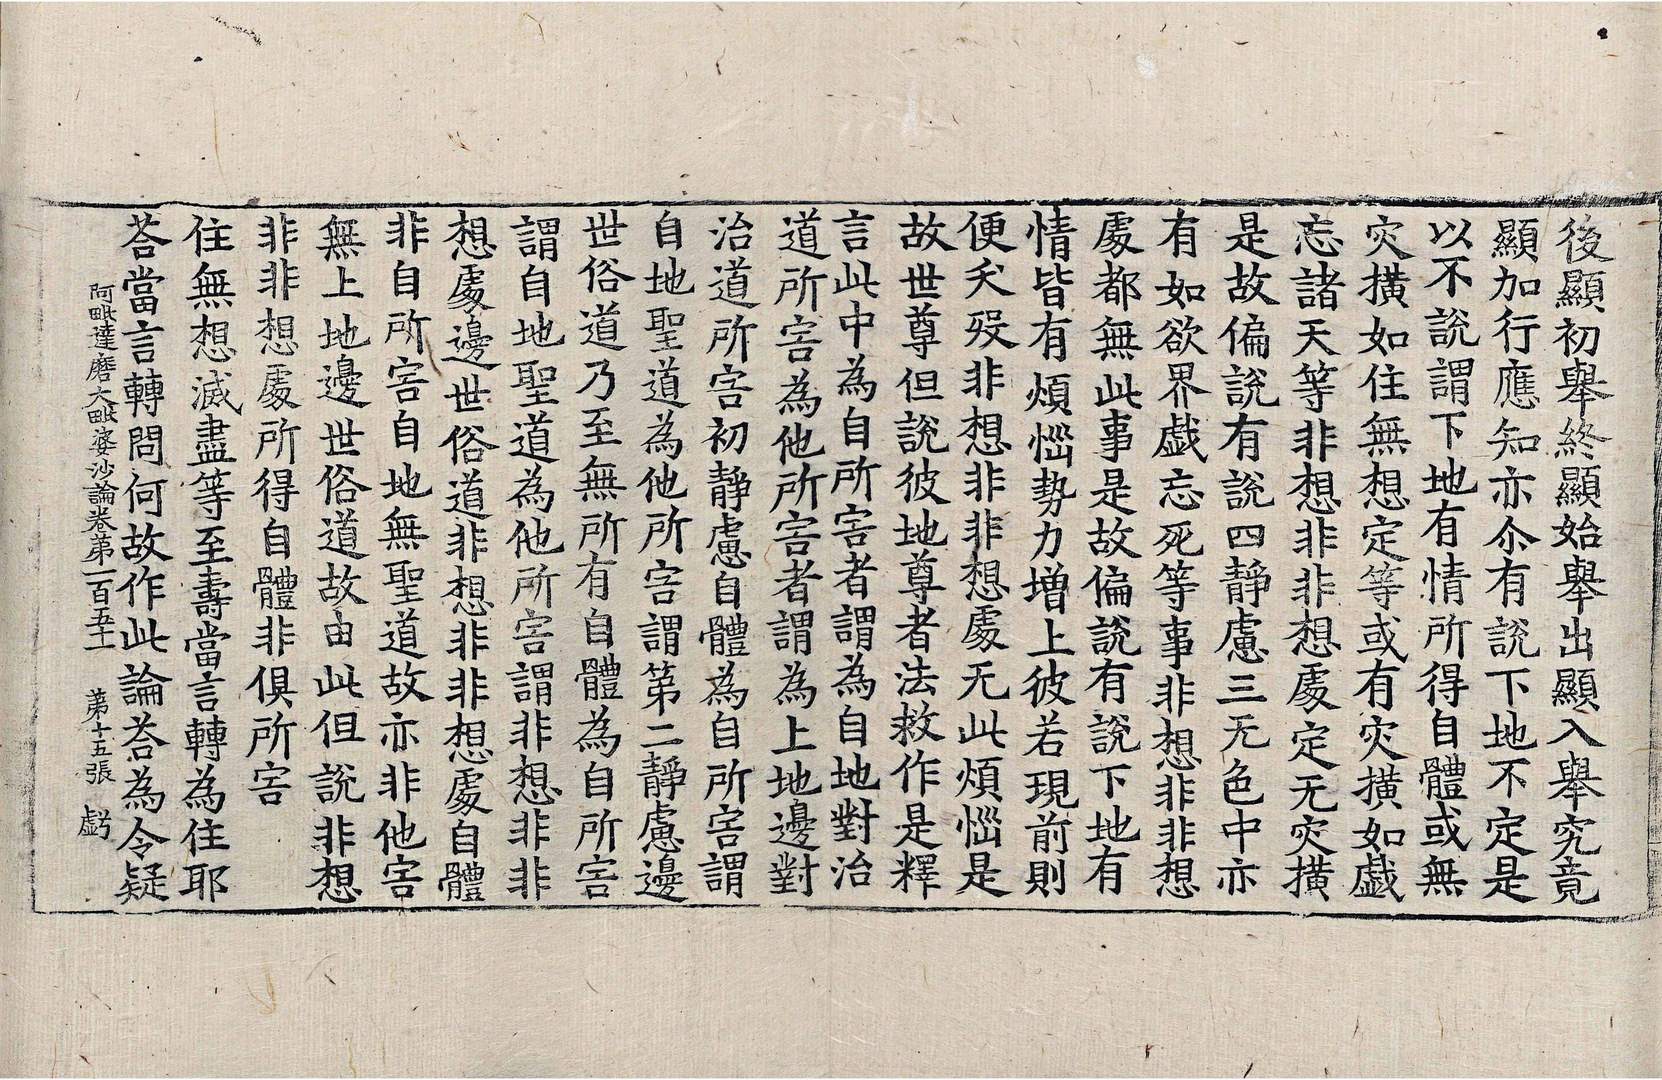 後顯初舉終顯始舉出顯入舉究竟
顯加行應知亦尒有說下地不定是
以不說謂下地有情所得自體或無
灾橫如住無想定等或有灾横如戱
忘諸天等非想非非想處定无灾横
是故偏說有說四靜慮三无色中亦
有如欲界戱忘死等事非想非非想
處都無此事是故偏說有說下地有
情皆有煩惱勢力增上彼若現前則
便夭殁非想非非想處无此煩惱是
故世尊但說彼地尊者法救作是釋
言此中為自所害者謂為自地對治
道所害為他所害者謂為上地邊對
治道所害初靜慮自體為自所害謂
自地聖道為他所害謂第二靜慮邊
世俗道乃至無所有自體為自所害
謂自地聖道為他所害謂非想非非
想處邊世俗道非想非非想處自體
非自所害自地無聖道故亦非他害
無上地邊世俗道故由此但說非想
非非想處所得自體非俱所害
住無想滅盡等至壽當言轉為住耶
荅當言轉問何故作此論荅為令疑
阿毗達磨大毗婆沙論卷第一百五十一 第十五張 虧